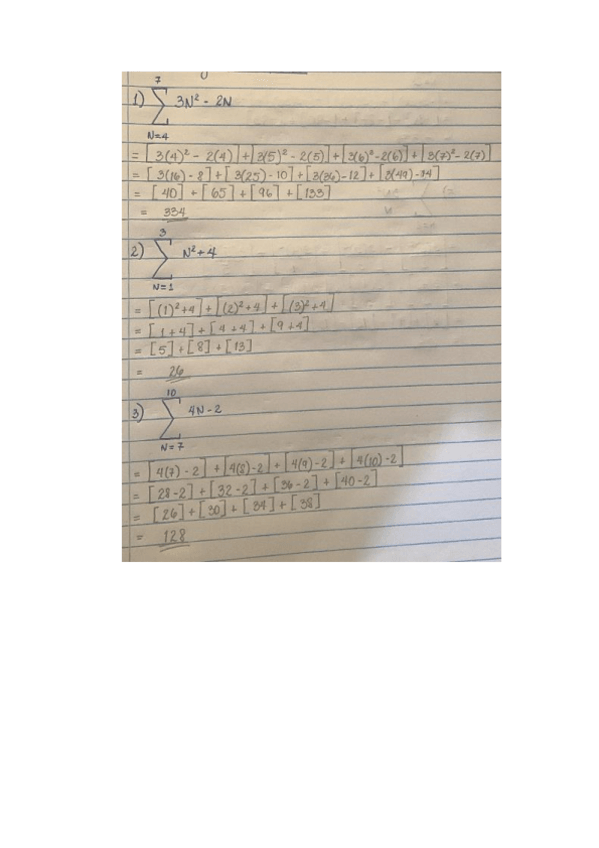 7
1) ∑ 3N² - 2N
N=4
= [3(4)² - 2(4)] + [3(5)² - 2(5)] + [3(6)² - 2(6)] + [3(7)² - 2(7)]
= [3(16) - 8] + [3(25) - 10] + [3(36) - 12] + [3(49) - 14]
= [40] + [65] + [96] + [133]
= 334
3
2) ∑ N² + 4
N=1
= [(1)² + 4] + [(2)² + 4] + [(3)² + 4]
= [1 + 4] + [4 + 4] + [9 + 4]
= [5] + [8] + [13]
= 26
10
3) ∑ 4N - 2
N=7
= [4(7) - 2] + [4(8) - 2] + [4(9) - 2] + [4(10) - 2]
= [28 - 2] + [32 - 2] + [36 - 2] + [40 - 2]
= [26] + [30] + [34] + [38]
= 128